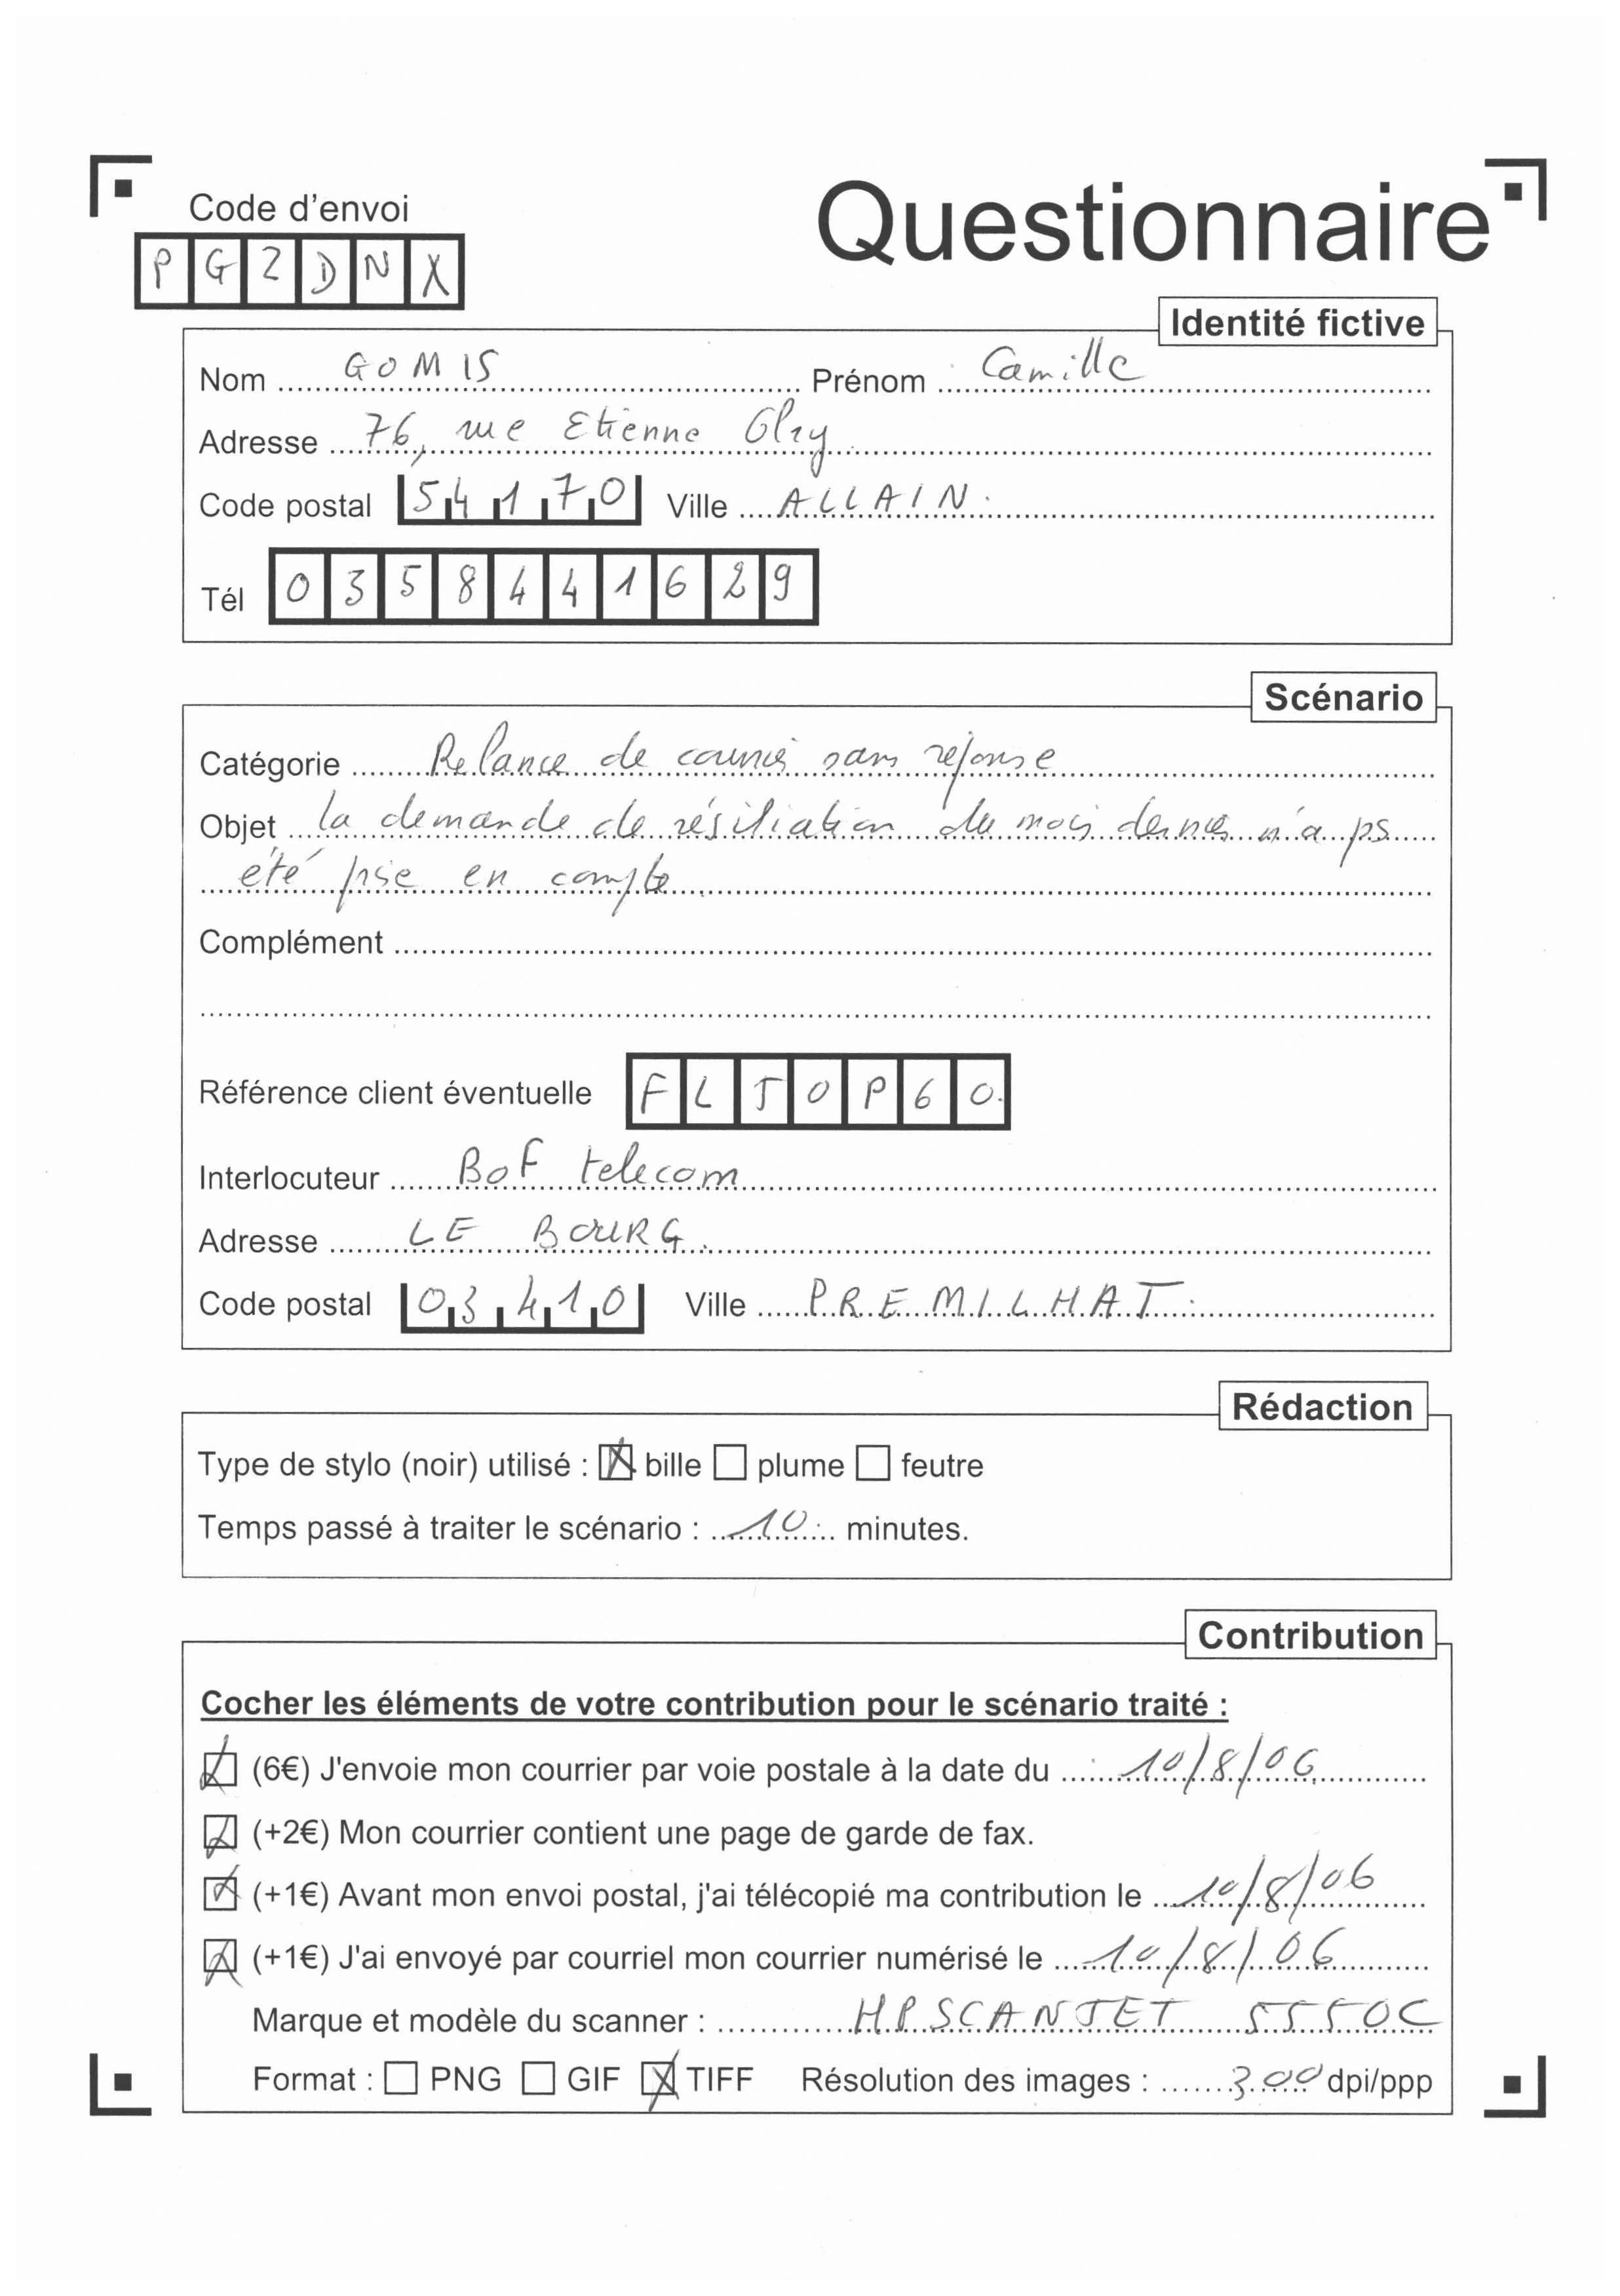 Code d'envoi
Questionnaire
PGZDNX
Identité fictive
Nom GOMIS Prénom Camille
Adresse 76, rue Etienne
Code postal 54170 Ville ALLAIN
Tél 0358441629
Scénario
Catégorie Relance de courrier sans réponse
Objet la demande de résiliation du mois dernier n'a ps
été prise en compte
Complément
Référence client éventuelle FLJOP60
Interlocuteur BoF telecom
Adresse LE BOURG.
Code postal 03410 Ville PREMILHAT.
Rédaction
Type de stylo (noir) utilisé : bille plume feutre
Temps passé à traiter le scénario : 10 minutes.
Contribution
Cocher les éléments de votre contribution pour le scénario traité :
(6€) J'envoie mon courrier par voie postale à la date du : 10/8/06
(+2€) Mon courrier contient une page de garde de fax.
(+1€) Avant mon envoi postal, j'ai télécopié ma contribution le 10/8/06
(+1€) J'ai envoyé par courriel mon courrier numérisé le 10/8/06
Marque et modèle du scanner : HP SCANJET 5550C
Format : PNG GIF TIFF Résolution des images : 300 dpi/ppp